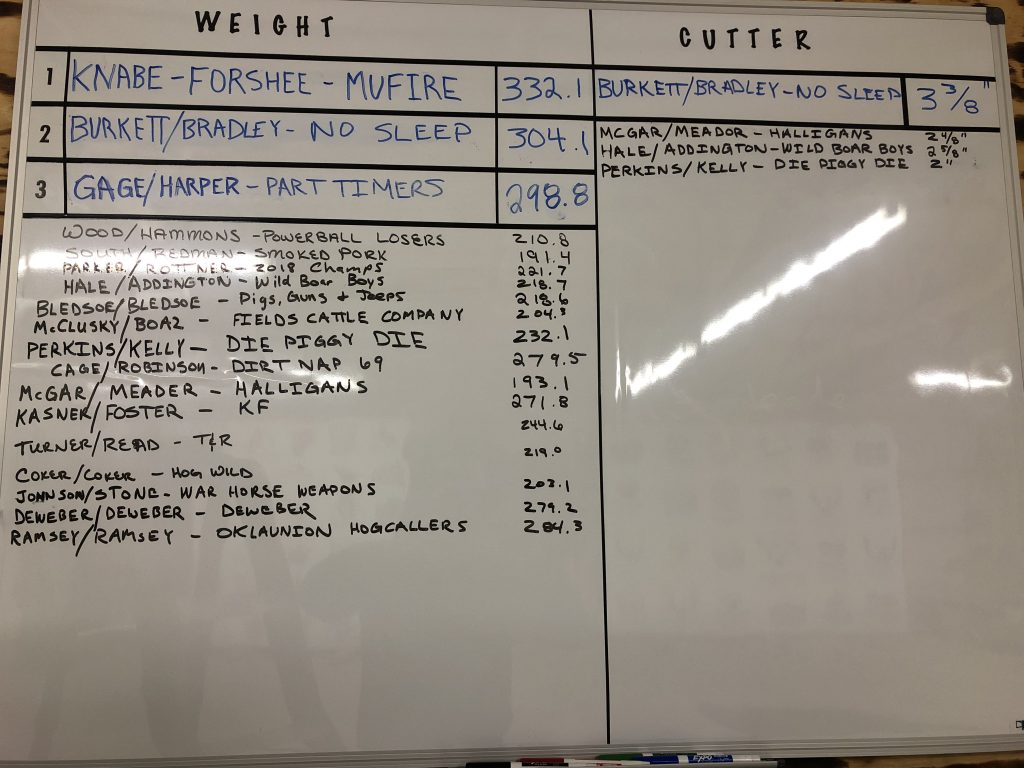 WEIGHT
1 KNABE - FORSHEE - MUFIRE 332.1
2 BURKETT/BRADLEY - NO SLEEP 304.1
3 GAGE/HARPER - PART TIMERS 298.8
WOOD/HAMMONS - POWERBALL LOSERS 210.8
SOUTH/REDMAN - SMOKED PORK 191.4
PARKER/ROTTNER - 2018 Champs 221.7
HALE/ADDINGTON - Wild Boar Boys 218.7
BLEDSOE/BLEDSOE - Pigs, Guns + Jeeps 218.6
McCLUSKY/BOAZ - FIELDS CATTLE COMPANY 204.3
PERKINS/KELLY - DIE PIGGY DIE 232.1
CAGE/ROBINSON - DIRT NAP 69 279.5
McGAR/MEADER - HALLIGANS 193.1
KASNER/FOSTER - KF 271.8
TURNER/READ - T&R 244.6
COKER/COKER - HOG WILD 219.0
JOHNSON/STONE - WAR HORSE WEAPONS 203.1
DEWEBER/DEWEBER - DEWEBER 279.2
RAMSEY/RAMSEY - OKLAUNION HOGCALLERS 284.3
CUTTER
BURKETT/BRADLEY - NO SLEEP 3 3/8"
MCGAR/MEADOR - HALLIGANS 2 4/8"
HALE/ADDINGTON - WILD BOAR BOYS 2 5/8"
PERKINS/KELLY - DIE PIGGY DIE 2"
EXPO